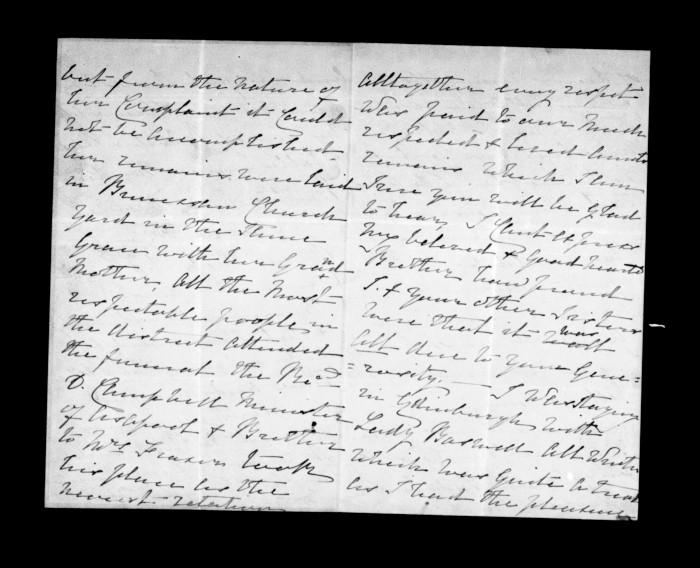 but from the nature of
her Complaint it Could
not be accomplished
her remains were laid
in Church
Yard in the Same
Grave with her Grand
Mother, All the Most
respectable people, in
the district attended
the funeral the Revd
D. Campbell Minister
of & Brother
to Mrs Fraser took
his place as the
nearest relation
Alltogether every respect
Was paid to our Much
respected & loved Aunts
remains Which I am
Sure you will be glad
to hear, I Cant express
My beloved & Good hearted
Brother how proud
I & Your other Sisters
were that it was
All due to Your Gene=
=rosity. — I Was Staying
in Edinburgh with
Lady Boswell All Winter
Which Was quite a treat
as I had the pleasure